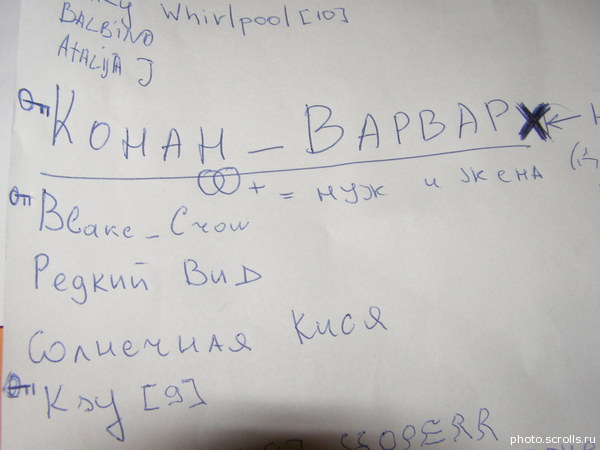 Whirlpool [10]
BALBINO
ATALIJA J
Оп Конан – Варвар
+ = муж и жена
Оп Blake_Crow
Редкий Вид
Солнечная Кися
Оп Ksy [9]
photo.scrolls.ru